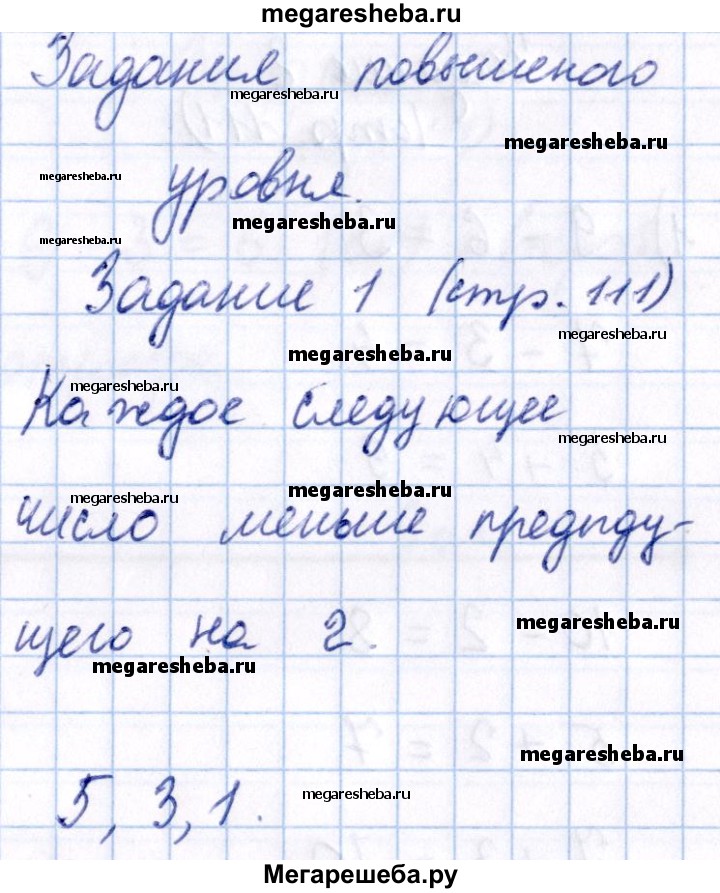 megaresheba.ru
Задания повышеного
megaresheba.ru
megaresheba.ru
megaresheba.ru
уровня.
megaresheba.ru
megaresheba.ru
Задание 1 (стр. 111)
megaresheba.ru
megaresheba.ru
megaresheba.ru
Каждое следующее
megaresheba.ru
megaresheba.ru
megaresheba.ru
число меньше предыду-
щего на 2.
megaresheba.ru
megaresheba.ru
megaresheba.ru
5, 3, 1.
megaresheba.ru
Мегарешеба.ру